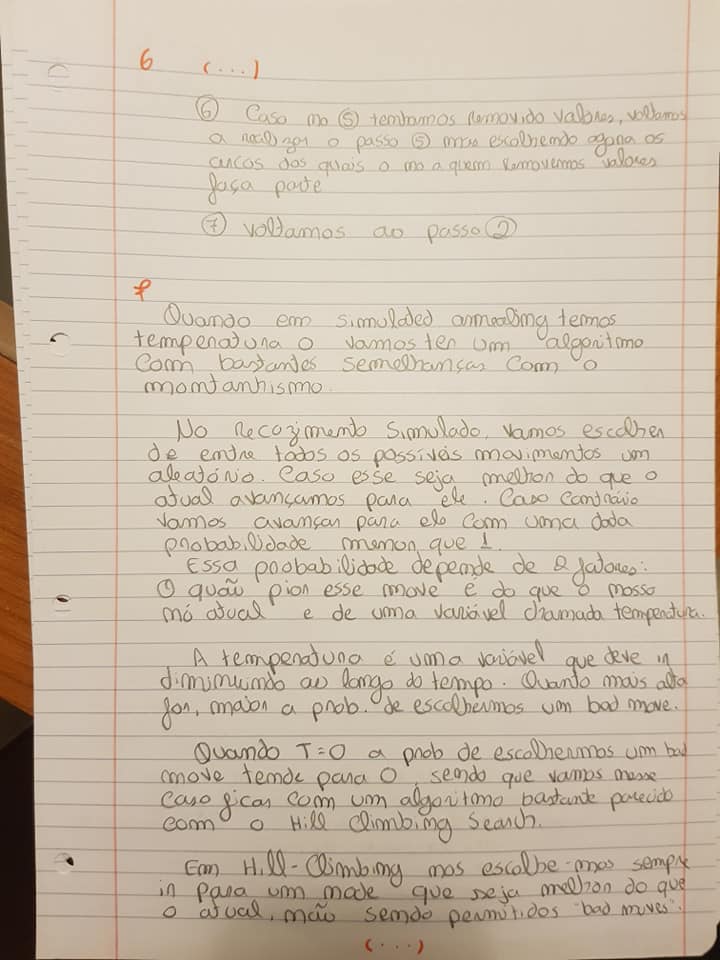 6 (...)
⑥ Caso no ⑤ tenhamos removido valores, voltamos
a realizar o passo ⑤ mas escolhendo agora os
arcos dos quais o no a quem removemos valores
faça parte
⑦ voltamos ao passo ②
f
Quando em simulated annealing temos
temperatura 0 vamos ter um algoritmo
com bastantes semelhanças com o
montanhismo.
No Recozimento Simulado, vamos escolher
de entre todos os possíveis movimentos um
aleatório. Caso esse seja melhor do que o
atual avançamos para ele. Caso contrário
vamos avançar para ele com uma dada
probabilidade menor que 1.
Essa probabilidade depende de 2 fatores:
O quão pior esse move é do que o nosso
nó atual e de uma variável chamada temperatura.
A temperatura é uma variável que deve ir
diminuindo ao longo do tempo. Quanto mais alta
for, maior a prob. de escolhermos um bad move.
Quando T=0 a prob de escolhermos um bad
move tende para 0, sendo que vamos nesse
caso ficar com um algoritmo bastante parecido
com o Hill Climbing Search.
Em Hill-Climbing nos escolhe-mos sempre
ir para um node que seja melhor do que
o atual, não sendo permitidos "bad moves".
(...)